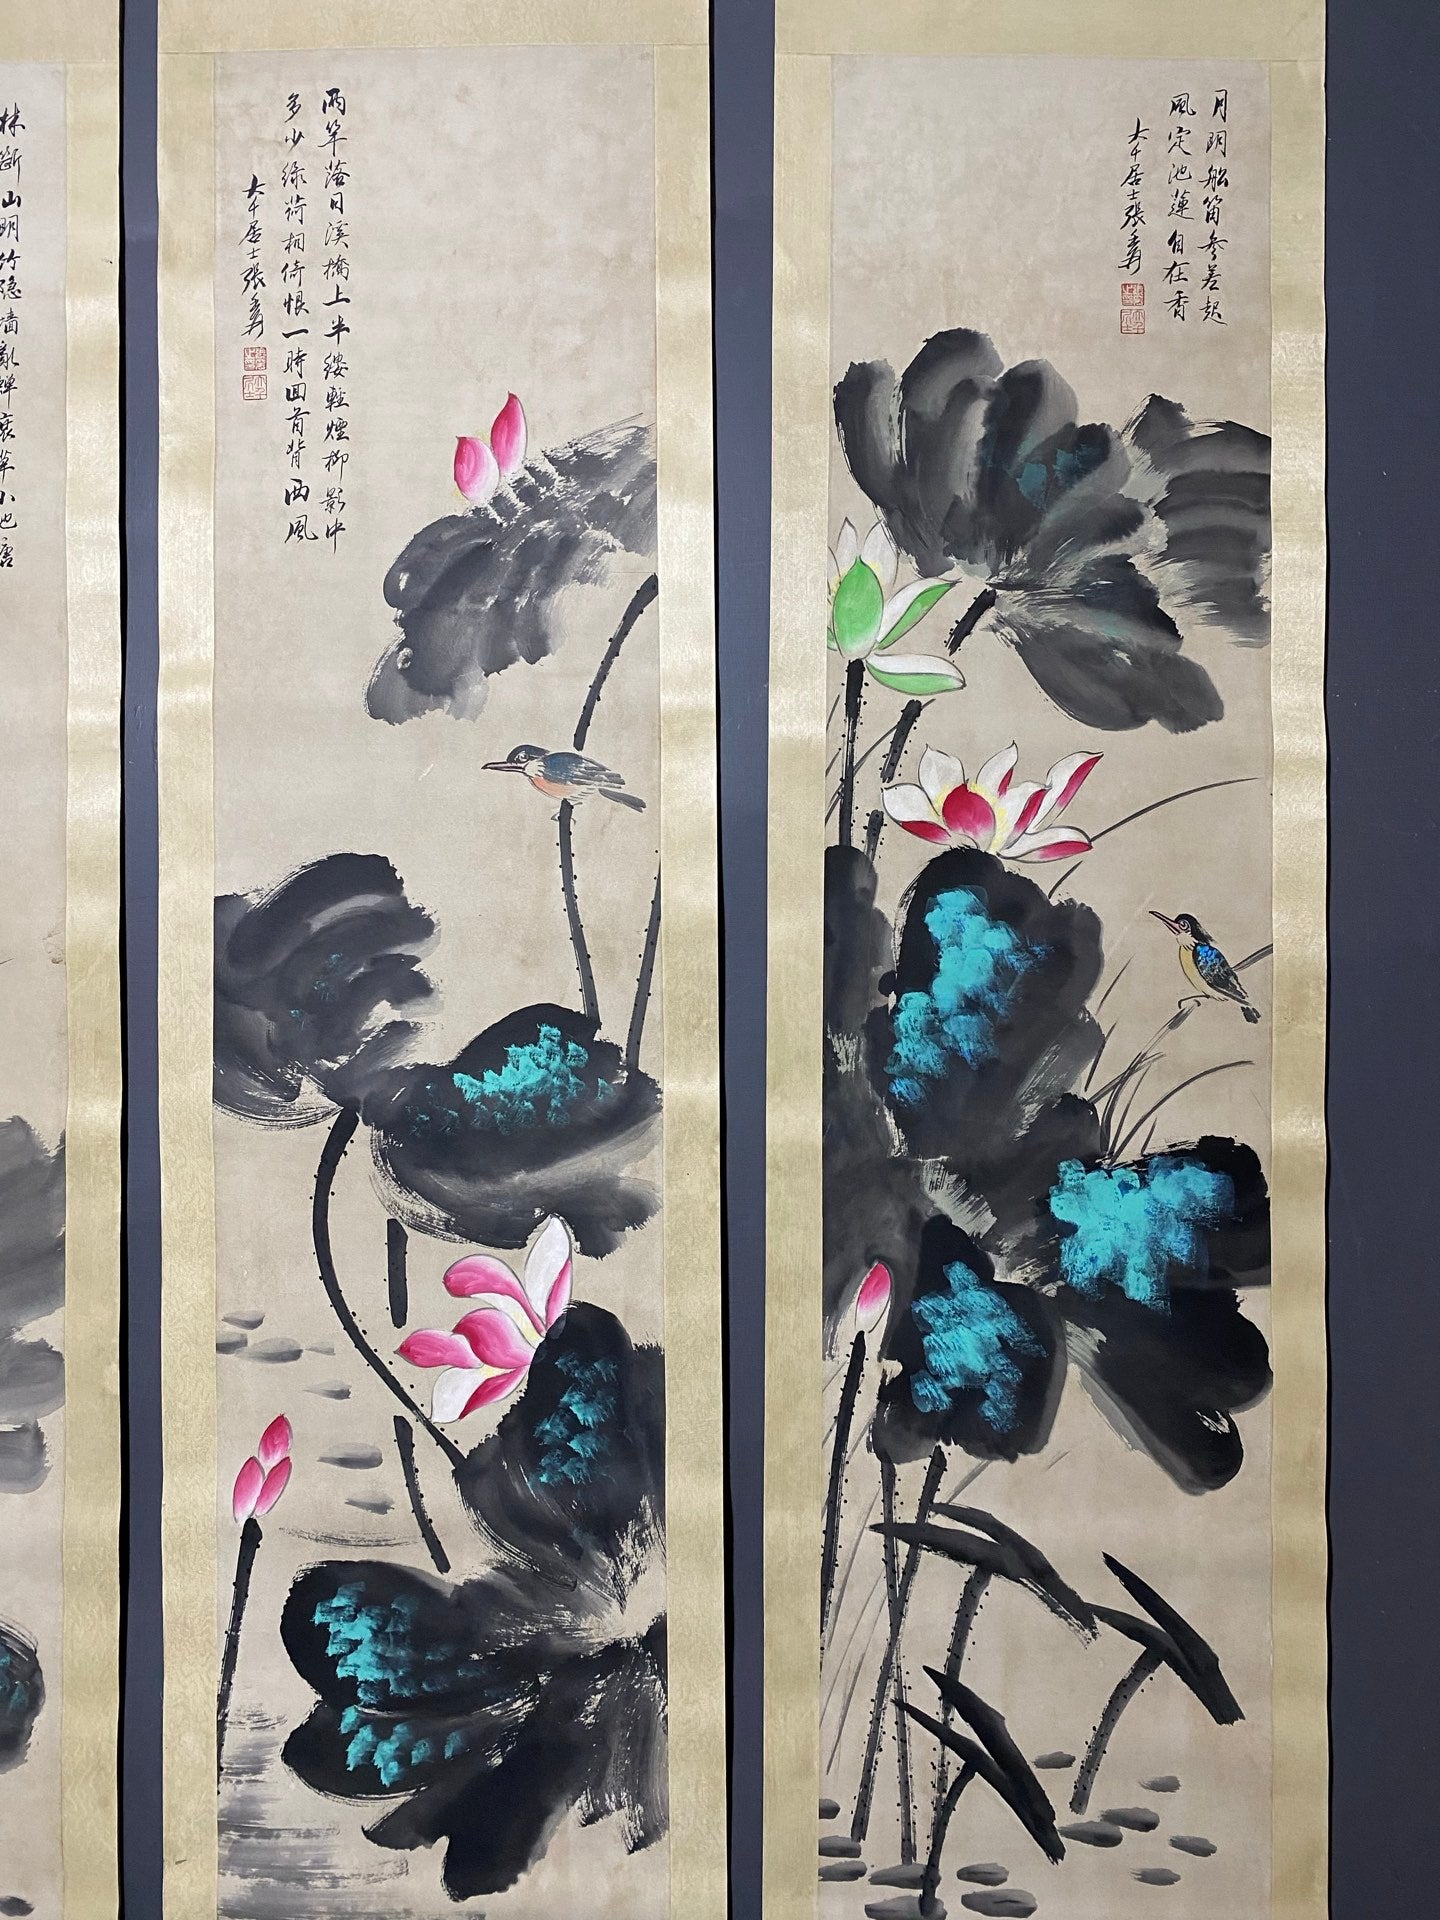 月明船笛參差起
風定池蓮自在香
大千居士張爰
兩竿落日溪橋上半縷輕煙柳影中
多少綠荷相倚恨一時回首背西風
大千居士張爰
林斷山明竹隱墻亂蟬衰草小池唐